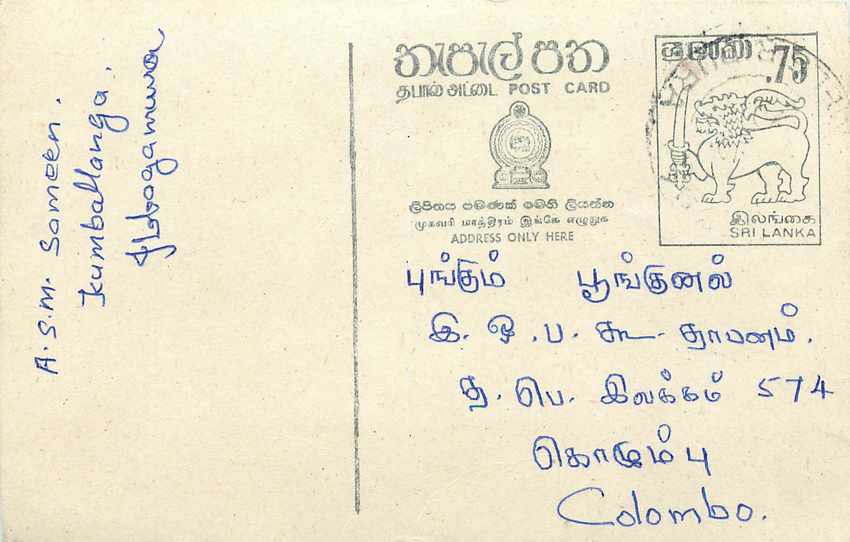 A. S. M. Sameen.
Kumballanga.
තැපැල් පත
தபால் அட்டை POST CARD
ලිපිනය පමණක් මෙහි ලියන්න
முகவரி மாத்திரம் இங்கே எழுதுக
ADDRESS ONLY HERE
ශ්‍රී ලංකා
.75
இலங்கை
SRI LANKA
பூங்கும் பூங்குனல்
இ. ஒ. ப. கூ. தாபனம்.
த. பெ. இலக்கம் 574
கொழும்பு
Colombo.